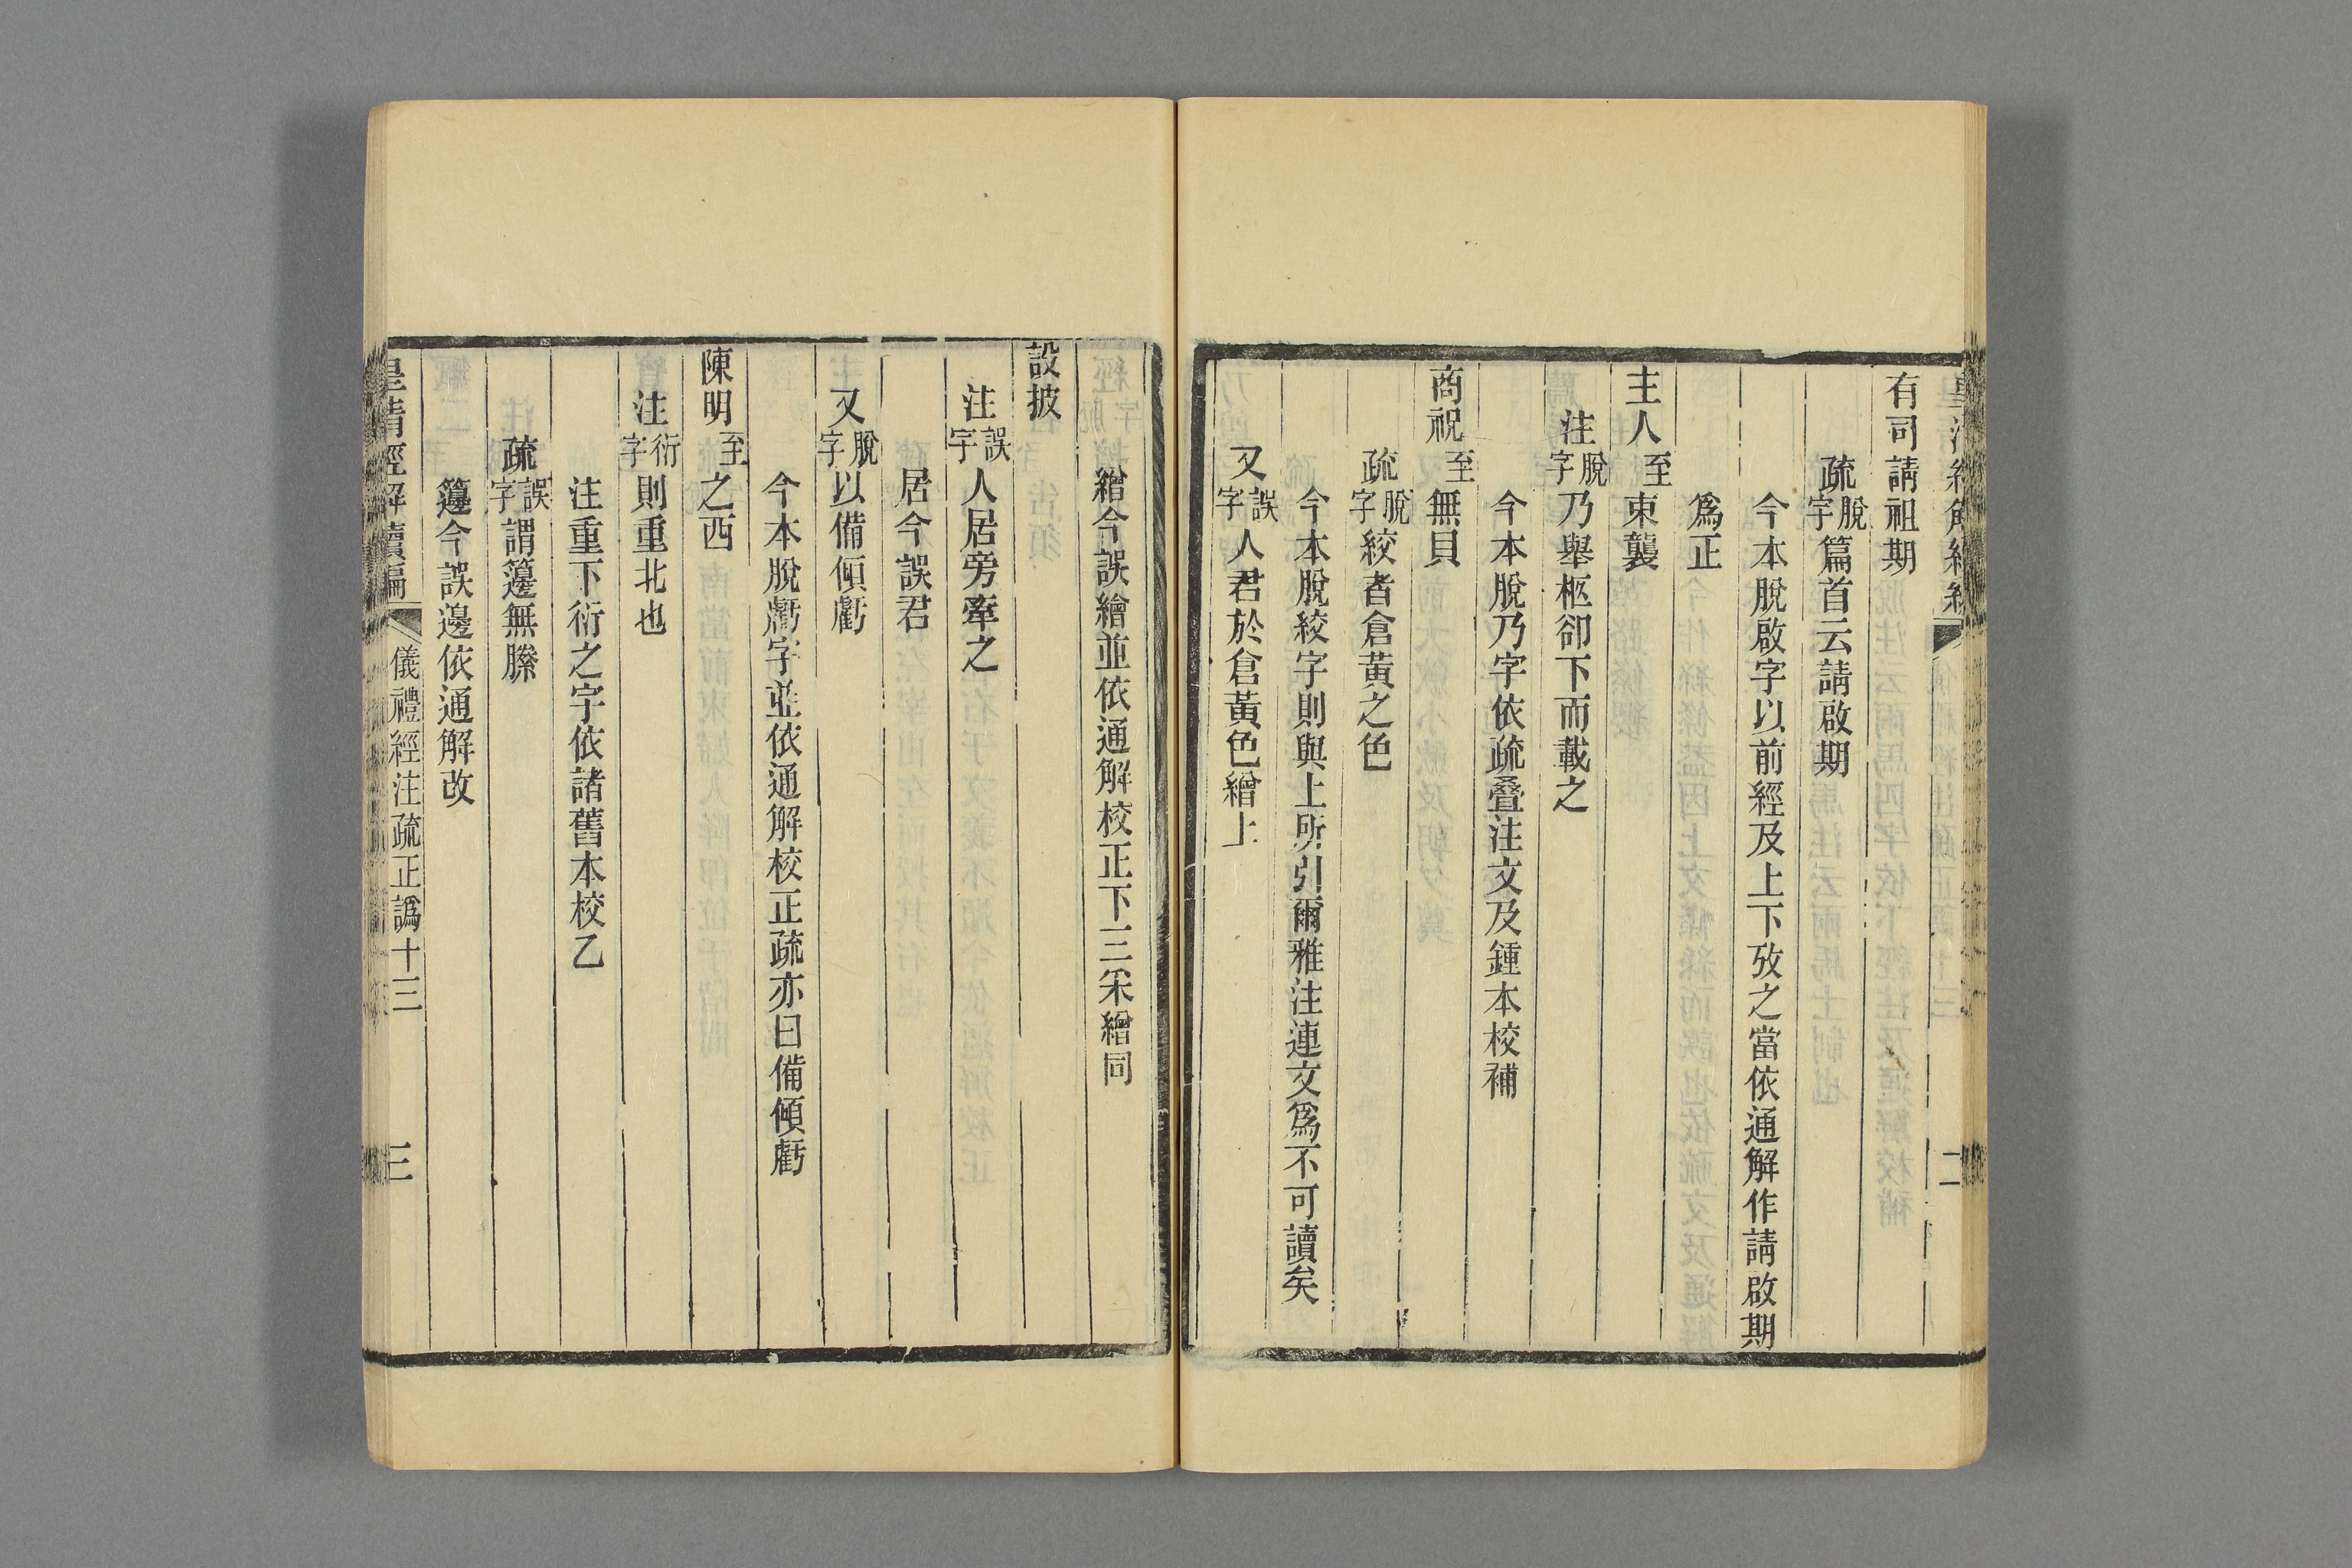 有司請祖期
疏脫字篇首云請啟期
今本脫啟字以前經及上下攷之當依通解作請啟期
爲正
主人至東襲
注脫字乃舉柩卻下而載之
今本脫乃字依疏疊注文及鍾本校補
商祝至無貝
疏脫字絞者倉黃之色
今本脫絞字則與上所引爾雅注連文爲不可讀矣
又誤字人君於倉黃色繒上
二
繒今誤繪並依通解校正下三采繒同
設披
注誤字人居旁牽之
居今誤君
又脫字以備傾虧
今本脫虧字並依通解校正疏亦曰備傾虧
陳明至之西
注衍字則重北也
注重下衍之字依諸舊本校乙
疏誤字謂籩無縢
籩今誤邊依通解改
皇清經解續編 儀禮經注疏正譌十三 三